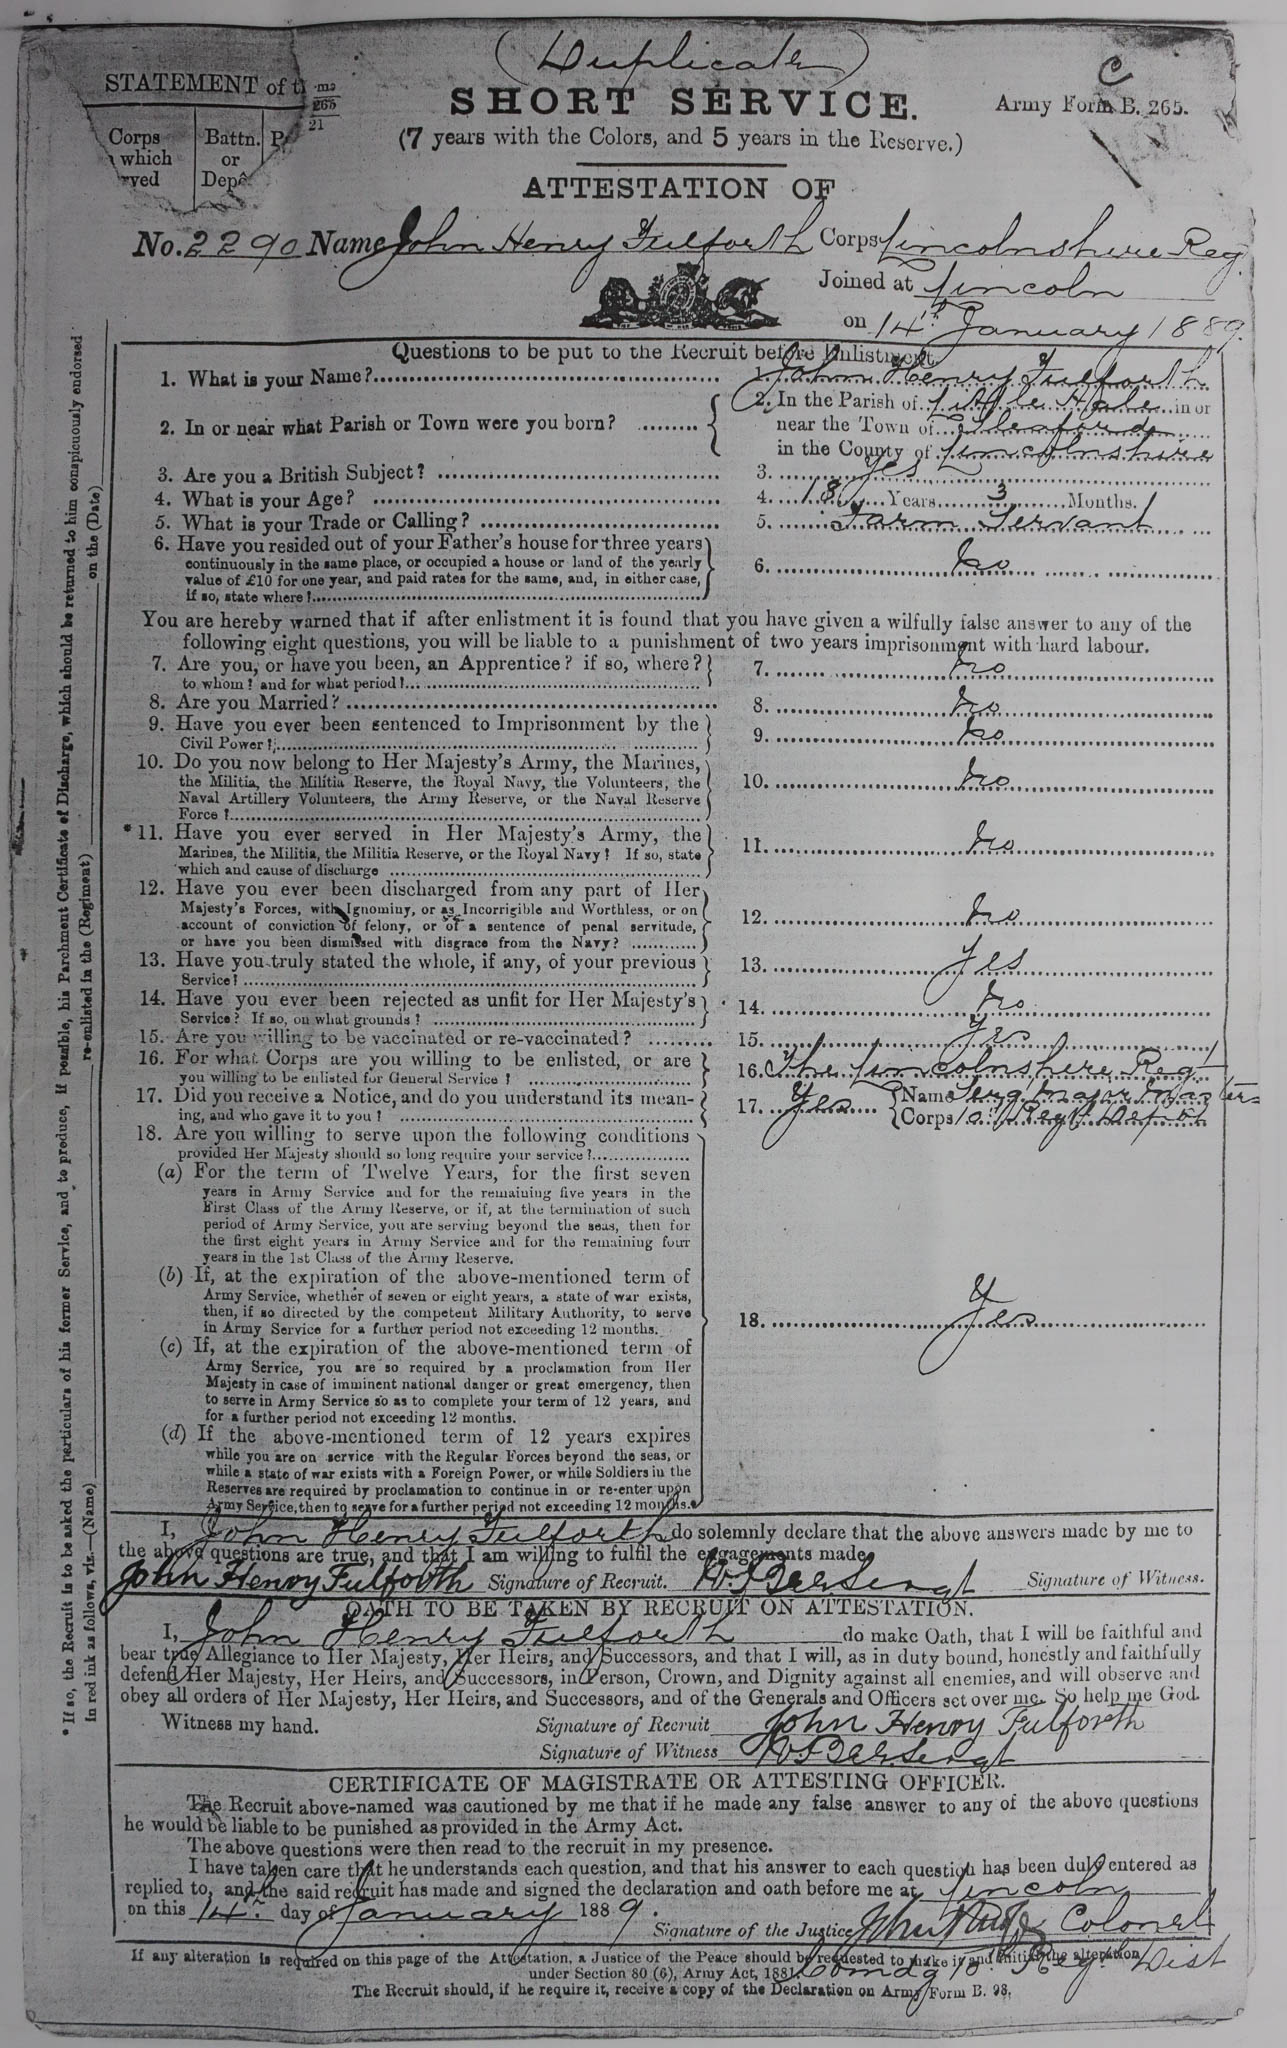 (Duplicate)
STATEMENT of th
Corps
which
rved
Battn.
or
Depô
265
21
SHORT SERVICE.
C
Army Form B. 265.
(7 years with the Colors, and 5 years in the Reserve.)
ATTESTATION OF
No. 2290 Name John Henry Fulforth Corps Lincolnshire Reg.
Joined at Lincoln
on 14th January 1889.
Questions to be put to the Recruit before Enlistment.
1. What is your Name? 1. John Henry Fulforth
2. In or near what Parish or Town were you born? 2. In the Parish of Little Hale in or
near the Town of Sleaford
in the County of Lincolnshire
3. Are you a British Subject? 3. Yes
4. What is your Age? 4. 18 Years 3 Months.
5. What is your Trade or Calling? 5. Farm Servant
6. Have you resided out of your Father's house for three years
continuously in the same place, or occupied a house or land of the yearly
value of £10 for one year, and paid rates for the same, and, in either case,
if so, state where? 6. No
You are hereby warned that if after enlistment it is found that you have given a wilfully false answer to any of the
following eight questions, you will be liable to a punishment of two years imprisonment with hard labour.
7. Are you, or have you been, an Apprentice? if so, where?
to whom? and for what period? 7. No
8. Are you Married? 8. No
9. Have you ever been sentenced to Imprisonment by the
Civil Power? 9. No
10. Do you now belong to Her Majesty's Army, the Marines,
the Militia, the Militia Reserve, the Royal Navy, the Volunteers, the
Naval Artillery Volunteers, the Army Reserve, or the Naval Reserve
Force? 10. No
*11. Have you ever served in Her Majesty's Army, the
Marines, the Militia, the Militia Reserve, or the Royal Navy? If so, state
which and cause of discharge 11. No
12. Have you ever been discharged from any part of Her
Majesty's Forces, with Ignominy, or as Incorrigible and Worthless, or on
account of conviction of felony, or of a sentence of penal servitude,
or have you been dismissed with disgrace from the Navy? 12. No
13. Have you truly stated the whole, if any, of your previous
Service? 13. Yes
14. Have you ever been rejected as unfit for Her Majesty's
Service? If so, on what grounds? 14. No
15. Are you willing to be vaccinated or re-vaccinated? 15. Yes
16. For what Corps are you willing to be enlisted, or are
you willing to be enlisted for General Service? 16. The Lincolnshire Regt
17. Did you receive a Notice, and do you understand its mean-
ing, and who gave it to you? 17. Yes Name Serg Major
Corps 10th Regtl Depôt
18. Are you willing to serve upon the following conditions
provided Her Majesty should so long require your service?
(a) For the term of Twelve Years, for the first seven
years in Army Service and for the remaining five years in the
First Class of the Army Reserve, or if, at the termination of such
period of Army Service, you are serving beyond the seas, then for
the first eight years in Army Service and for the remaining four
years in the 1st Class of the Army Reserve.
(b) If, at the expiration of the above-mentioned term of
Army Service, whether of seven or eight years, a state of war exists,
then, if so directed by the competent Military Authority, to serve
in Army Service for a further period not exceeding 12 months.
18. Yes
(c) If, at the expiration of the above-mentioned term of
Army Service, you are so required by a proclamation from Her
Majesty in case of imminent national danger or great emergency, then
to serve in Army Service so as to complete your term of 12 years, and
for a further period not exceeding 12 months.
(d) If the above-mentioned term of 12 years expires
while you are on service with the Regular Forces beyond the seas, or
while a state of war exists with a Foreign Power, or while Soldiers in the
Reserves are required by proclamation to continue in or re-enter upon
Army Service, then to serve for a further period not exceeding 12 months.
I, John Henry Fulforth do solemnly declare that the above answers made by me to
the above questions are true, and that I am willing to fulfil the engagements made.
John Henry Fulforth Signature of Recruit. Sergt Signature of Witness.
OATH TO BE TAKEN BY RECRUIT ON ATTESTATION.
I, John Henry Fulforth do make Oath, that I will be faithful and
bear true Allegiance to Her Majesty, Her Heirs, and Successors, and that I will, as in duty bound, honestly and faithfully
defend Her Majesty, Her Heirs, and Successors, in Person, Crown, and Dignity against all enemies, and will observe and
obey all orders of Her Majesty, Her Heirs, and Successors, and of the Generals and Officers set over me. So help me God.
Witness my hand. Signature of Recruit John Henry Fulforth
Signature of Witness Sergt
CERTIFICATE OF MAGISTRATE OR ATTESTING OFFICER.
The Recruit above-named was cautioned by me that if he made any false answer to any of the above questions
he would be liable to be punished as provided in the Army Act.
The above questions were then read to the recruit in my presence.
I have taken care that he understands each question, and that his answer to each question has been duly entered as
replied to, and the said recruit has made and signed the declaration and oath before me at Lincoln
on this 14th day of January 1889.
Signature of the Justice John Colonel
Comdg 10th Reg. Dist
If any alteration is required on this page of the Attestation, a Justice of the Peace should be requested to make it and initial the alteration
under Section 80 (6), Army Act, 1881.
The Recruit should, if he require it, receive a copy of the Declaration on Army Form B. 98.
* If so, the Recruit is to be asked the particulars of his former Service, and to produce, if possible, his Parchment Certificate of Discharge, which should be returned to him conspicuously endorsed
in red ink as follows, viz.—(Name) re-enlisted in the (Regiment) on the (Date)